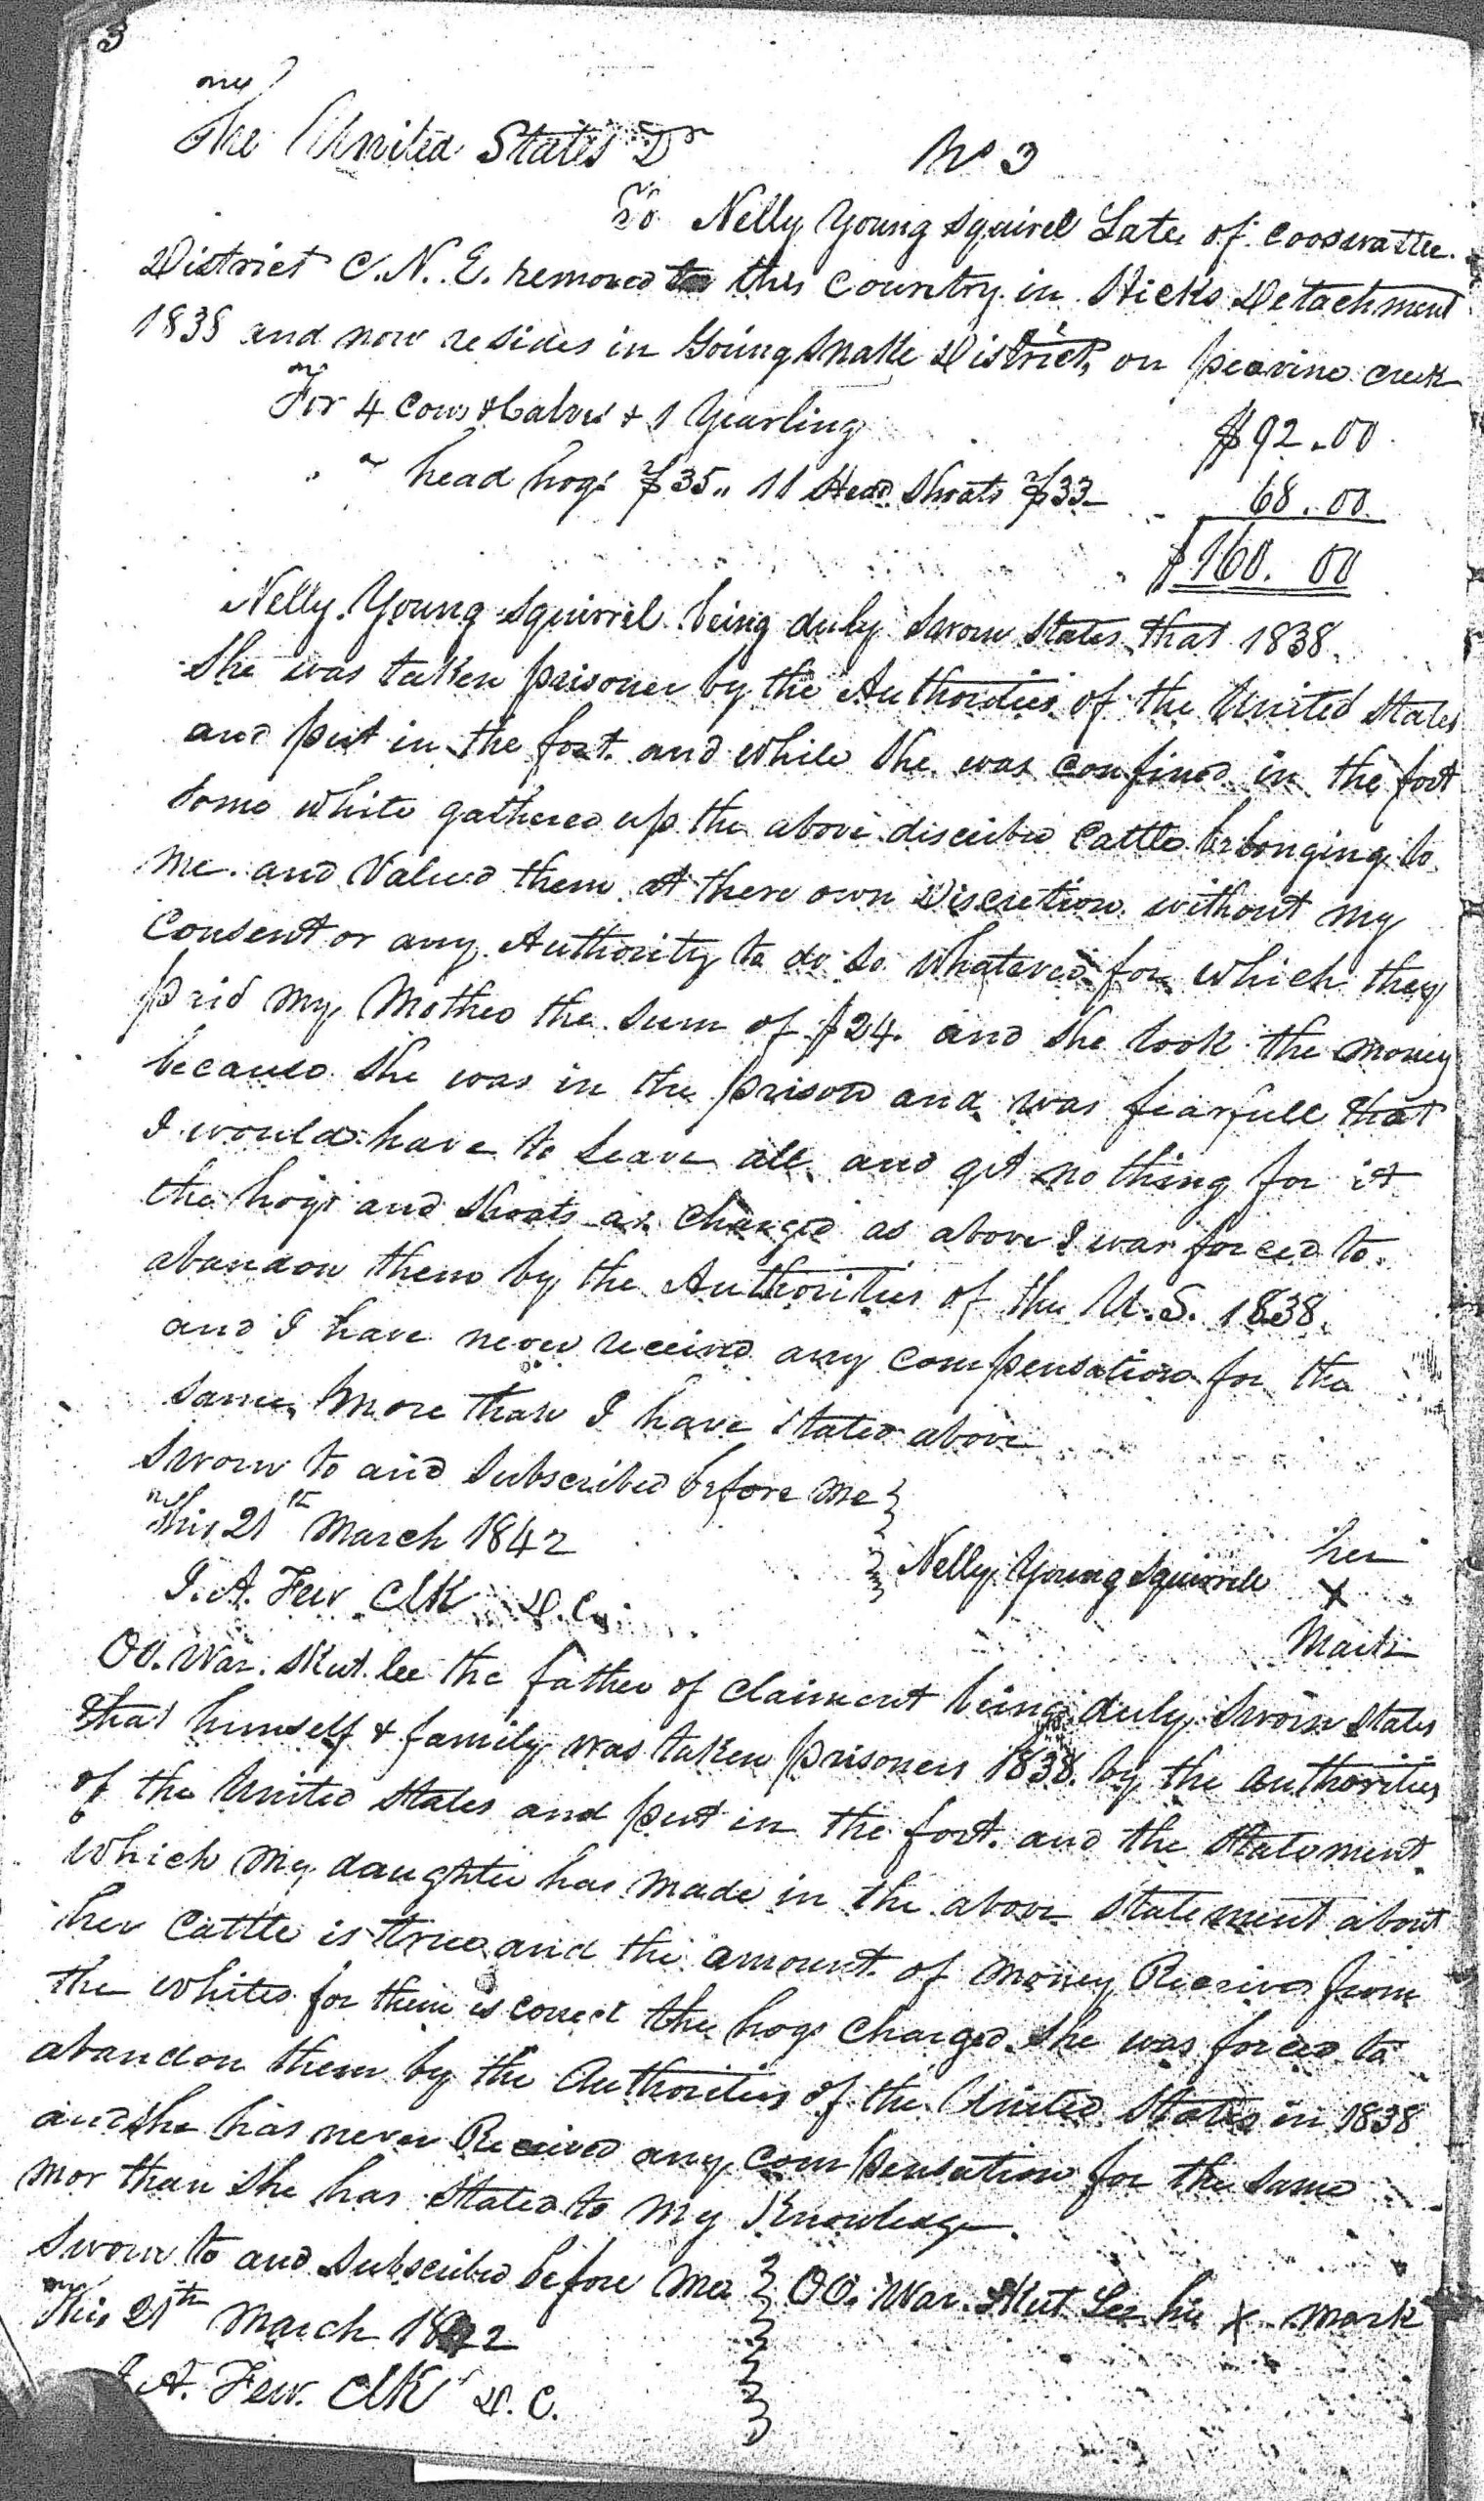 3
The United States Dr
No 3
To Nelly Young Squirel Late of Cooswattee
District C.N.E. removed to this Country in Hicks Detachment
1838 and now resides in Going Snake District, on peavine creek
For 4 Cows & Calves & 1 Yearling $92.00
" " head hogs $35 " 11 Head Shoats $33 68.00
$160.00
Nelly Young Squirrel being duly sworn states that 1838
She was taken prisoner by the Authorities of the United States
and put in the fort and while she was confined in the fort
some white gathered up the above discribed Cattle belonging to
me and Valued them at there own Discretion without my
Consent or any Authority to do so whatever for which they
paid my Mother the sum of $24. and she took the money
because she was in the prison and was fearfull that
I would have to leave all and get nothing for it
the hogs and shoats as charged as above I was forced to
abandon them by the Authorities of the U.S. 1838.
and I have never received any compensation for the
same, more than I have stated above
Sworn to and subscribed before me
This 21th March 1842
Nelly Young Squirrell her
X
Mark
J.A. Few Clk D.C.
Oo. War. Skut. lee the father of claiment being duly sworn states
that himself & family was taken prisoners 1838. by the authorities
of the United States and put in the fort. and the Statement
which my daughter has made in the above statement about
her Cattle is true and the amount of money Received from
the whites for them is correct the hogs Charged she was forced to
abandon them by the Authorities of the United States in 1838
and she has never Received any compensation for the same
mor than she has Stated to my Knowledge
Sworn to and subscribed before me
Oo. War. Skut Lee his X mark
This 21th March 1842
J.A. Few. Clk D.C.